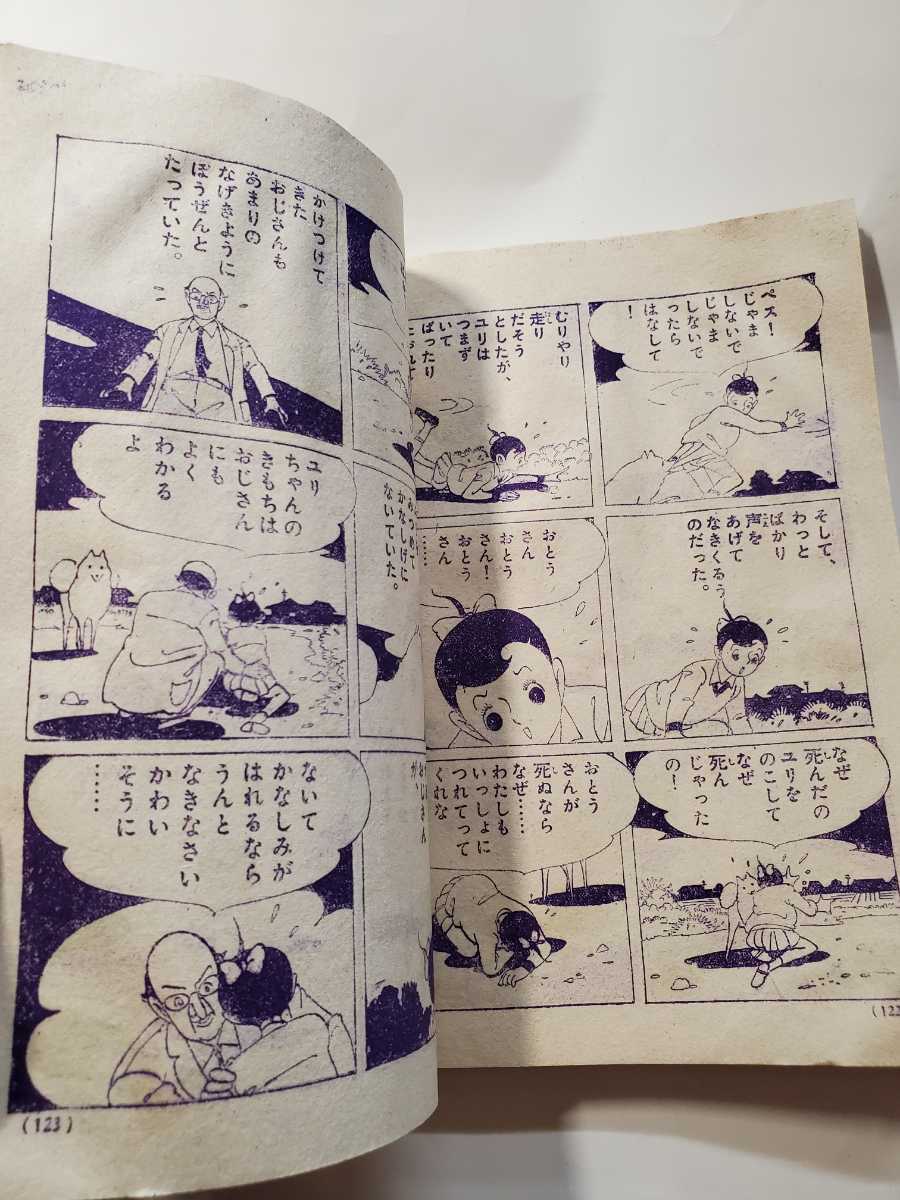 ペス！
じゃま
しないで
じゃま
しないで
ったら
はなして
！
むりやり
走り
だそう
としたが、
ユリは
つまず
いて
ばったり
そして、
わっと
ばかり
声を
あげて
なきくるう
のだった。
おとう
さん
おとう
さん！
おとう
さん
……
なぜ
死んだの
ユリを
のこして
なぜ
死ん
じゃった
の！
おとう
さんが
死ぬなら
なぜ……
わたしも
いっしょに
つれてって
くれな
(122
かなしげに
ないていた。
かけつけて
きた
おじさんも
あまりの
なげきように
ぼうぜんと
たっていた。
ユリ
ちゃんの
きもちは
おじさん
にも
よく
わかる
よ
ないて
かなしみが
はれるなら
うんと
なきなさい
かわい
そうに
……
(123)